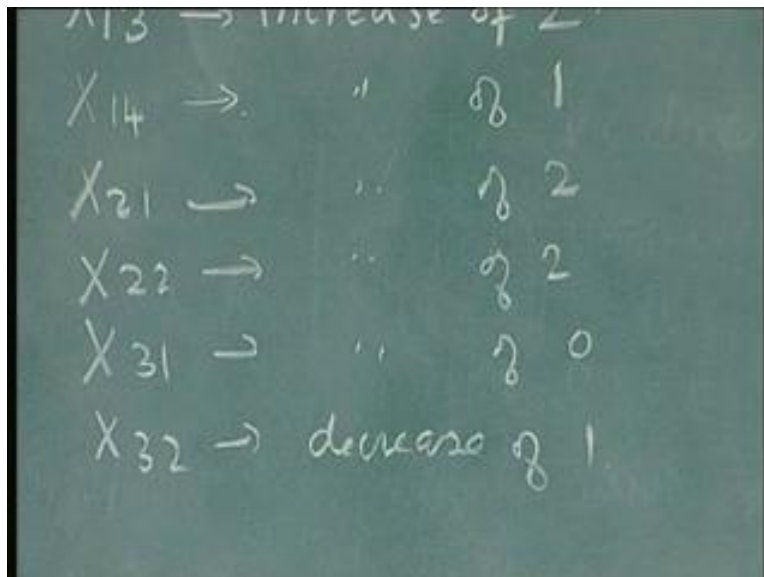 X13 → increase of 2
X14 → " of 1
X21 → " of 2
X22 → " of 2
X31 → " of 0
X32 → decrease of 1